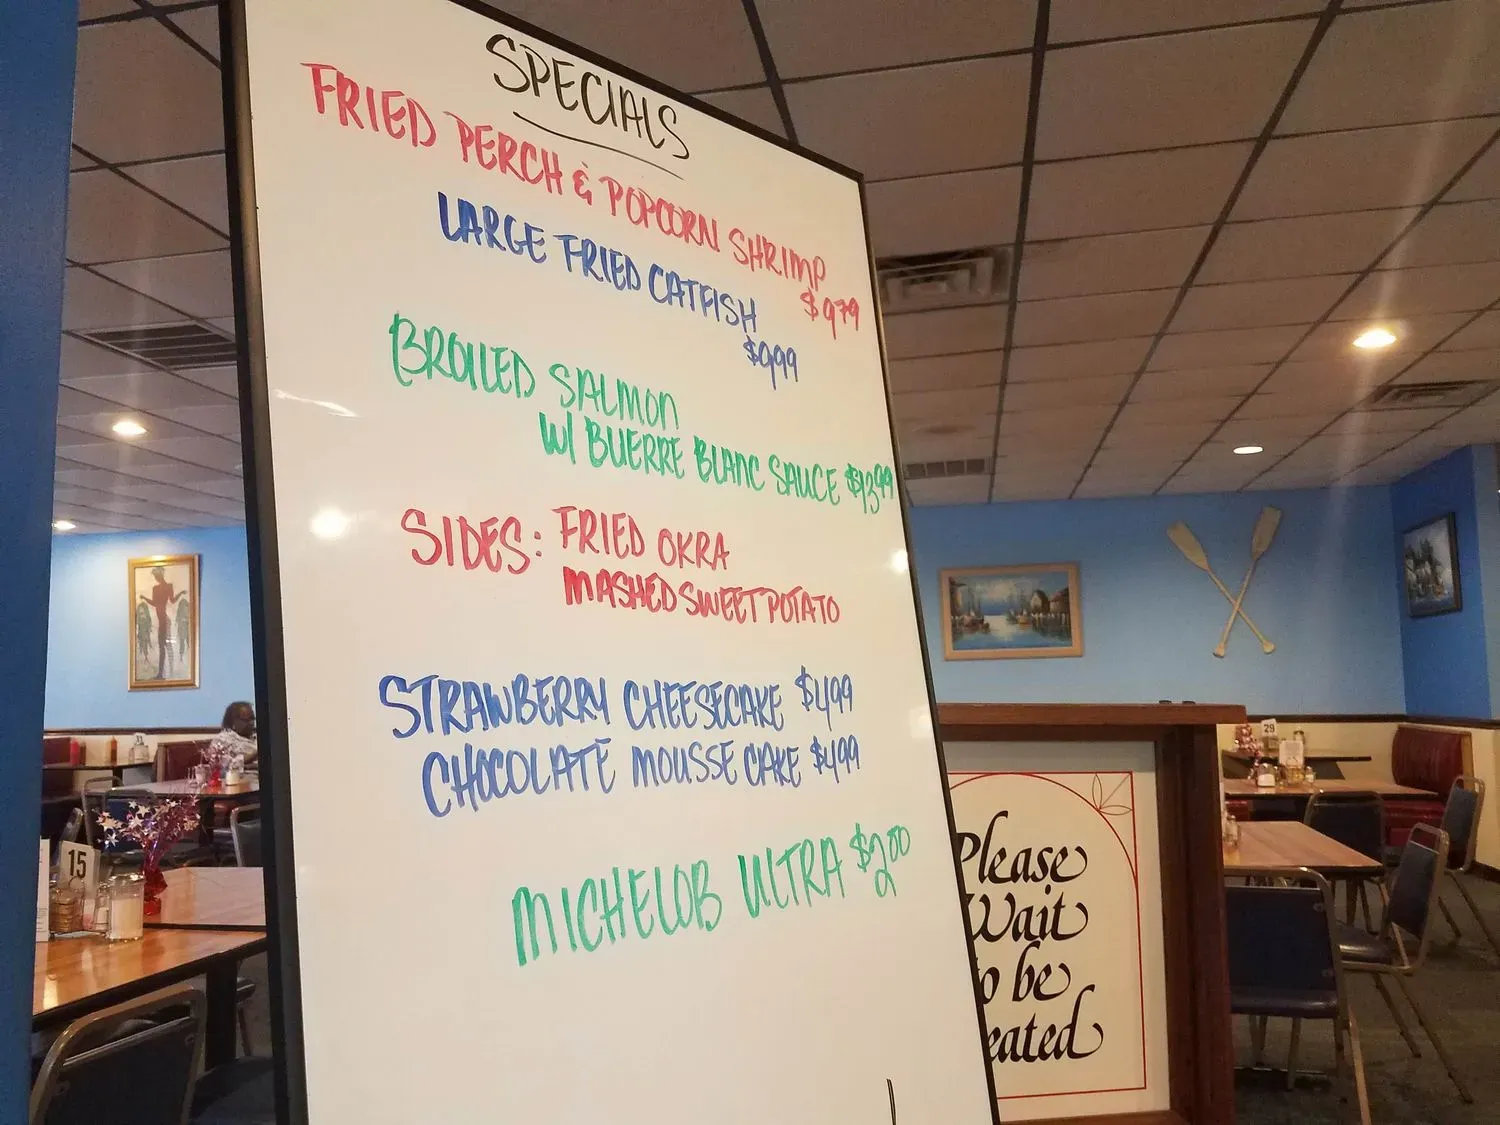 SPECIALS
FRIED PERCH & POPCORN SHRIMP
$9.79
LARGE FRIED CATFISH
$9.99
BROILED SALMON
W/ BUERRE BLANC SAUCE $13.99
SIDES: FRIED OKRA
MASHED SWEET POTATO
STRAWBERRY CHEESECAKE $4.99
CHOCOLATE MOUSSE CAKE $4.99
MICHELOB ULTRA $2.00
Please
Wait
o be
eated
15
29